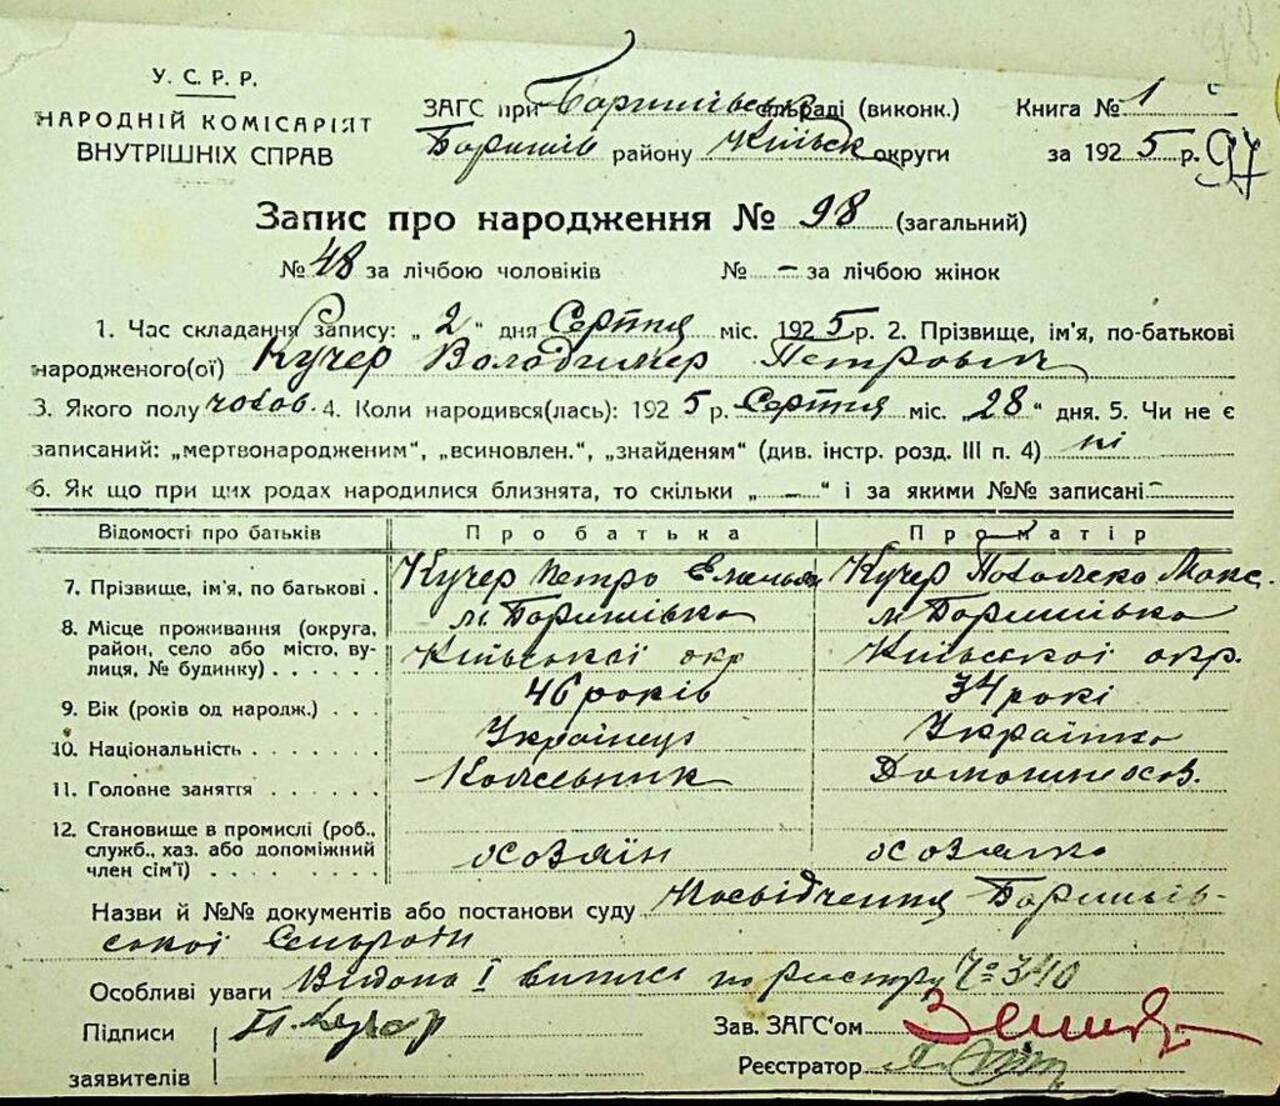 У. С. Р. Р.
НАРОДНІЙ КОМІСАРІЯТ
ВНУТРІШНІХ СПРАВ
ЗАГС при Баришівськ сельраді (виконк.)
Баришів району Київськ округи
Книга № 1
за 1925 р. 97
Запис про народження № 98 (загальний)
№ 48 за лічбою чоловіків № – за лічбою жінок
1. Час складання запису: „2" дня Серпня міс. 1925 р. 2. Прізвище, ім'я, по-батькові
народженого(ої) Кучер Володимер Петрович
3. Якого полу чолов. 4. Коли народився(лась): 1925 р. Серпня міс. „28" дня. 5. Чи не є
записаний: „мертвонародженим", „всиновлен.", „знайденям" (див. інстр. розд. III п. 4) ні
6. Як що при цих родах народилися близнята, то скільки „–" і за якими №№ записані –
Відомості про батьків Про батька Про матір
7. Прізвище, ім'я, по батькові . Кучер Петро Кучер Макс.
8. Місце проживання (округа, район, село або місто, вулиця, № будинку) . . . . . .
м. Баришівка м. Баришівка
Київської окр Київської окр.
9. Вік (років од народж.) . . . 46 років 34 рокі
10. Національність . . . . . . . Українець Українка
11. Головне заняття . . . . . . Домашне осов.
12. Становище в промислі (роб., служб., хаз. або допоміжний член сім'ї) . . . . . . . . .
хозяїн хозяйка
Назви й №№ документів або постанови суду Посвідчення Баришів-
ської Сельради
Особливі уваги Видано I витяг по реєстру № 340
Підписи П. Кучер Зав. ЗАГС'ом
заявителів Реєстратор